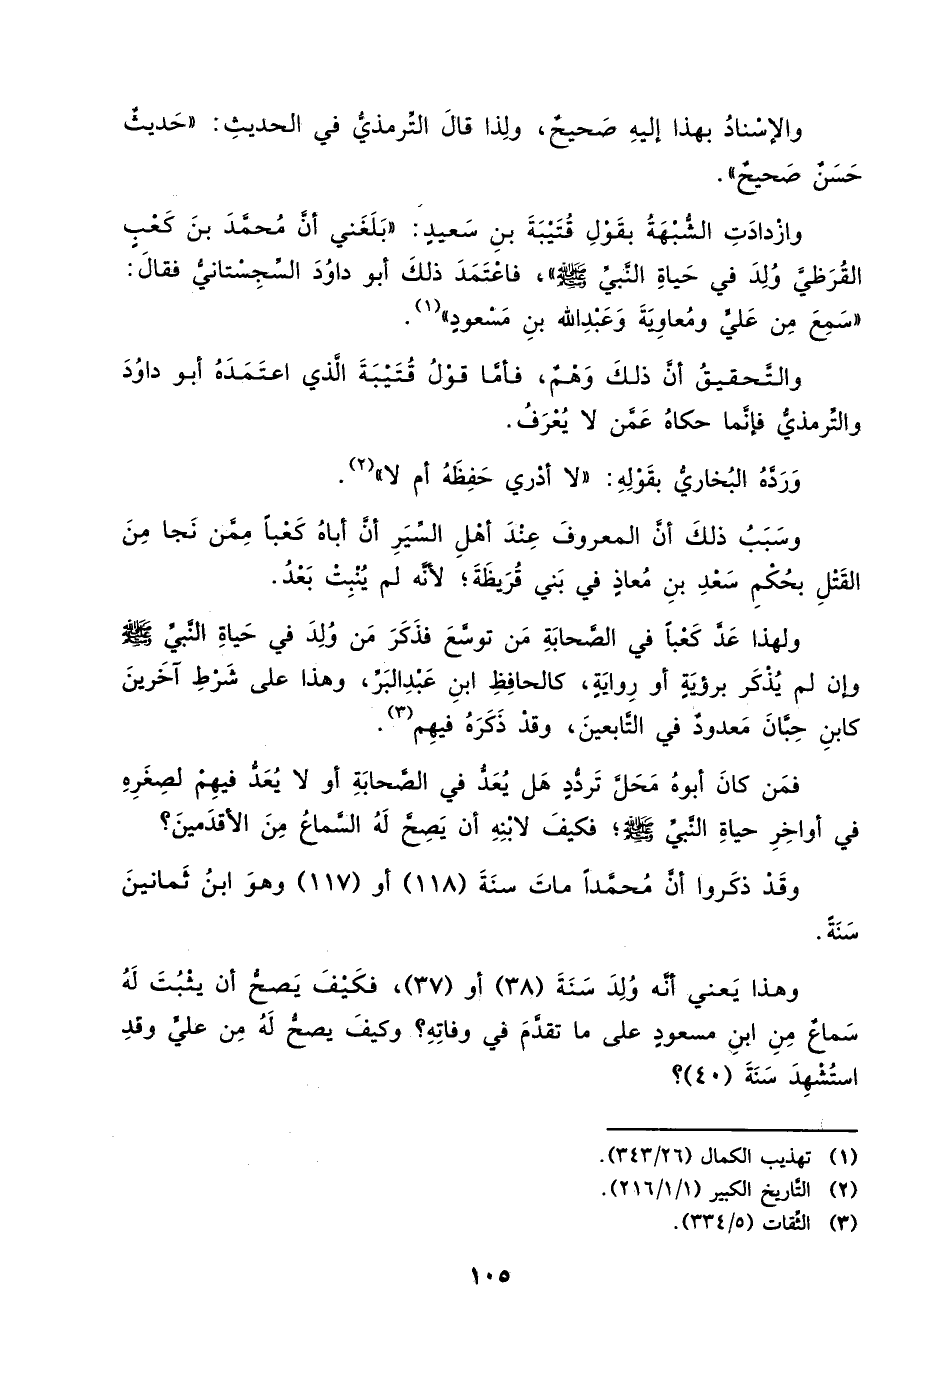 والإسْنادُ بهذا إليهِ صَحيحٌ، ولِذا قالَ التِّرمذيُّ في الحديثِ: «حَديثٌ
حَسَنٌ صَحيحٌ».
وازْدادَتِ الشُّبْهَةُ بقَوْلِ قُتَيْبَةَ بنِ سَعيدٍ: «بَلَغَني أنَّ مُحمَّدَ بنَ كَعْبٍ
القُرَظيَّ وُلِدَ في حَياةِ النَّبيِّ ﷺ»، فاعْتَمَدَ ذلكَ أبو داوُدَ السِّجِسْتانيُّ فقالَ:
«سَمِعَ مِن عَليٍّ ومُعاوِيَةَ وَعَبْدِالله بنِ مَسْعودٍ»(١).
والتَّحقيقُ أنَّ ذلكَ وَهْمٌ، فأمَّا قوْلُ قُتَيْبَةَ الَّذي اعتَمَدَهُ أبو داوُدَ
والتِّرمذيُّ فإنَّما حكاهُ عَمَّن لا يُعْرَفُ.
وَرَدَّهُ البُخاريُّ بقَوْلِهِ: «لا أدْري حَفِظَهُ أم لا»(٢).
وسَبَبُ ذلكَ أنَّ المعروفَ عِنْدَ أهْلِ السِّيَرِ أنَّ أباهُ كَعْباً مِمَّن نَجا مِنَ
القَتْلِ بحُكْمِ سَعْدِ بنِ مُعاذٍ في بَني قُرَيظَةَ؛ لأنَّه لم يُنْبِتْ بَعْدُ.
ولهذا عَدَّ كَعْباً في الصَّحابَةِ مَن توسَّعَ فذَكَرَ مَن وُلِدَ في حَياةِ النَّبيِّ ﷺ
وإن لم يُذْكَر برؤيَةٍ أو رِوايَةٍ، كالحافِظِ ابنِ عَبْدِالبَرِّ، وهذا على شَرْطِ آخَرينَ
كابنِ حِبَّانَ مَعدودٌ في التَّابعينَ، وقدْ ذَكَرَهُ فيهِم(٣).
فمَن كانَ أبوهُ مَحَلَّ تَردُّدٍ هَل يُعَدُّ في الصَّحابَةِ أو لا يُعَدُّ فيهِمْ لصِغَرِهِ
في أواخِرِ حياةِ النَّبيِّ ﷺ؛ فكيفَ لابْنِهِ أن يَصِحَّ لَهُ السَّماعُ مِنَ الأقدَمينَ؟
وقَدْ ذكَروا أنَّ مُحمَّداً ماتَ سنَةَ (١١٨) أو (١١٧) وهوَ ابنُ ثَمانينَ
سَنَةً.
وهذا يَعني أنَّه وُلِدَ سَنَةَ (٣٨) أو (٣٧)، فكَيْفَ يَصحُّ أن يثْبُتَ لَهُ
سَماعٌ مِنِ ابنِ مسعودٍ على ما تقدَّمَ في وفاتِهِ؟ وكيفَ يصحُّ لَهُ مِن عليٍّ وقدِ
استُشْهِدَ سَنَةَ (٤٠)؟
(١) تهذيب الكمال (٣٤٣/٢٦).
(٢) التَّاريخ الكبير (٢١٦/١/١).
(٣) الثِّقات (٣٣٤/٥).
١٠٥